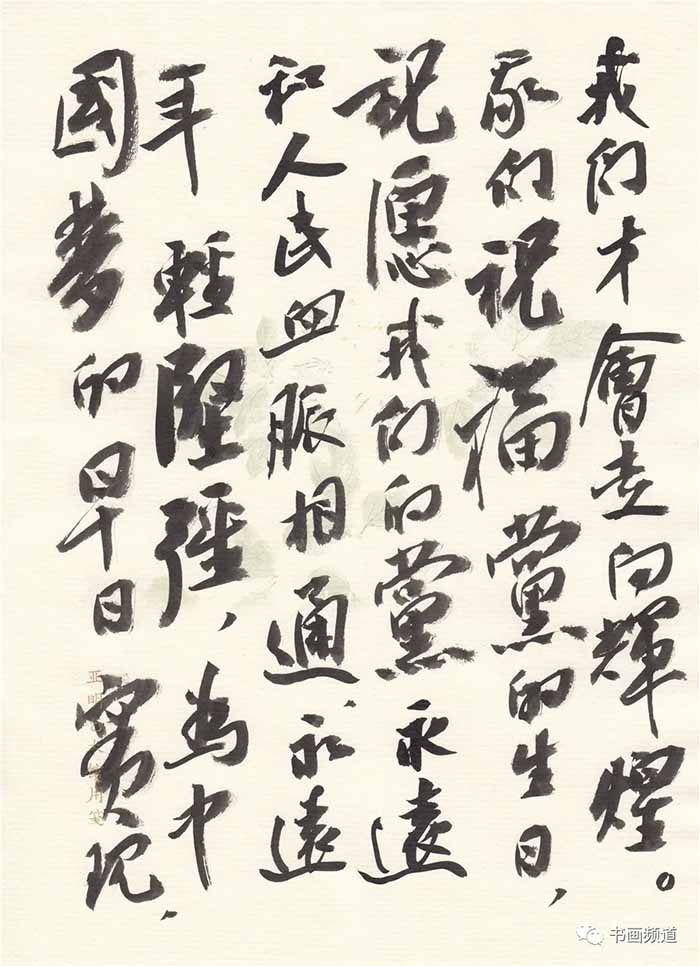 我们才會走向輝煌。
我们祝福黨的生日，
祝愿我们的黨永遠
和人民血脈相通、永遠
年輕堅强，為中
國夢的早日實现，
书画频道